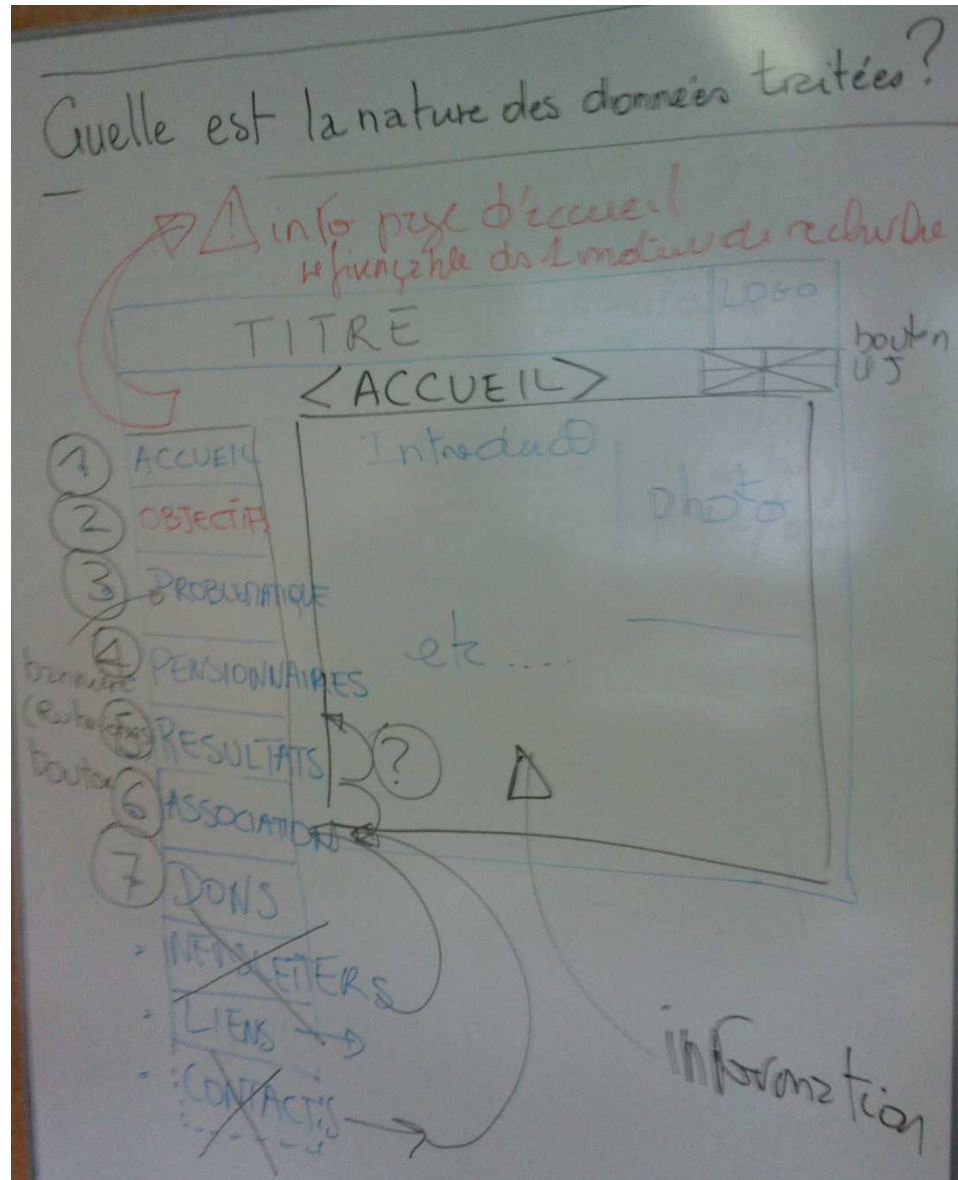 Quelle est la nature des données traitées?
info page d'accueil
référençable ds 1 moteur de recherche
TITRE
LOGO
bouton
<ACCUEIL>
Introduc
photo
etc....
1 ACCUEIL
2 OBJECTIFS
3 PROBLEMATIQUE
4 PENSIONNAIRES
5 RESULTATS
?
6 ASSOCIATION
7 DONS
NEWSLETTERS
LIENS
CONTACTS
bouton
information